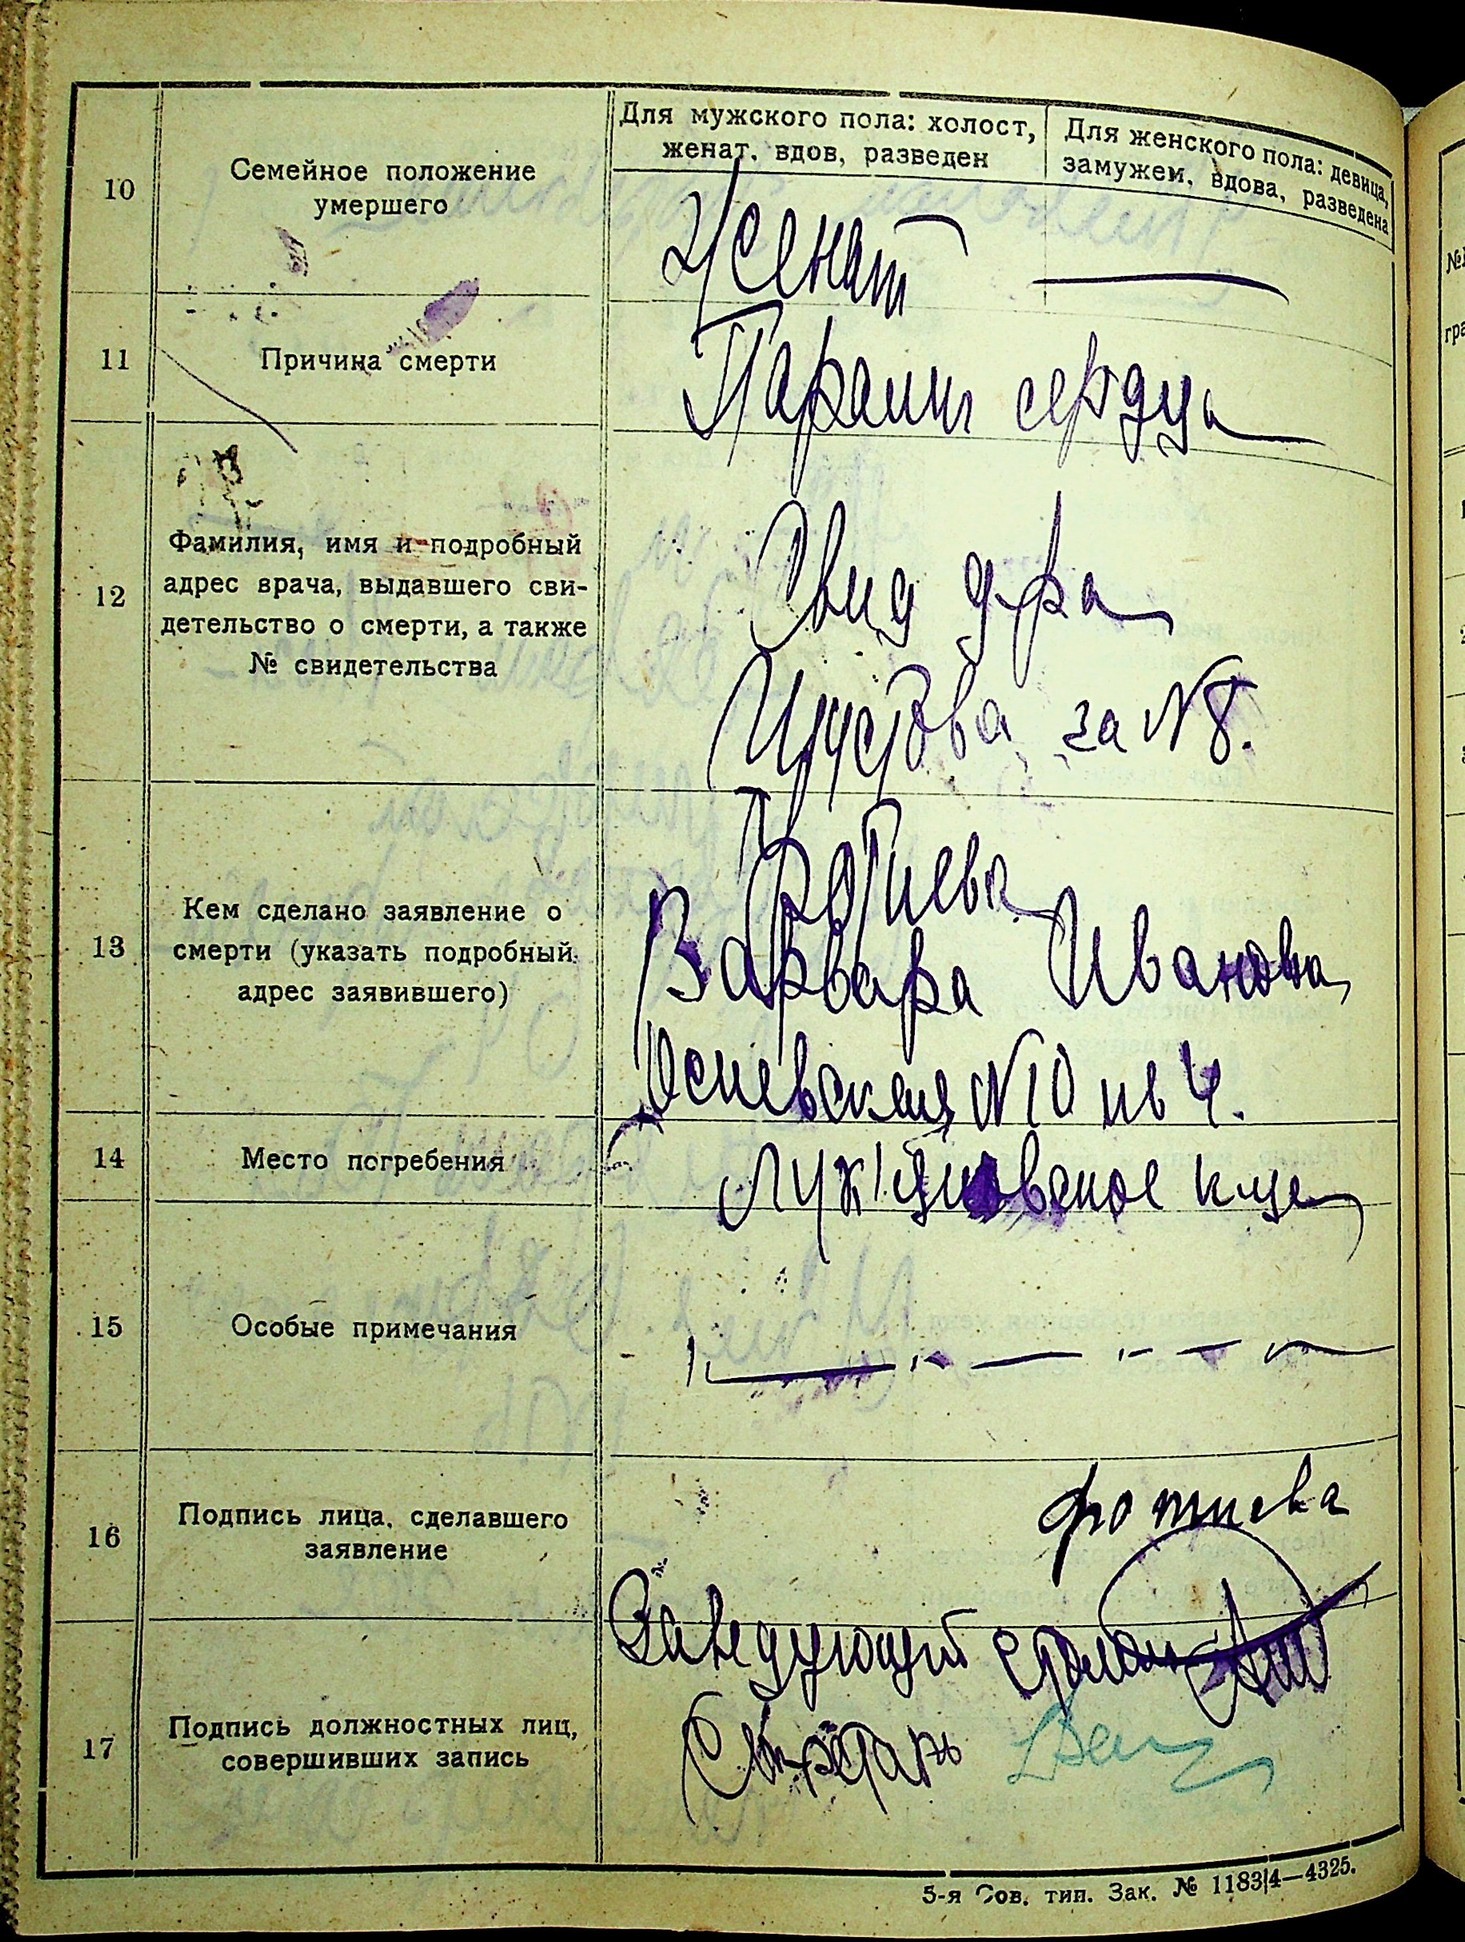 Для мужского пола: холост,
женат, вдов, разведен
Для женского пола: девица,
замужем, вдова, разведена
10
Семейное положение
умершего
Женат
11
Причина смерти
Паралич сердца
12
Фамилия, имя и подробный
адрес врача, выдавшего сви-
детельство о смерти, а также
№ свидетельства
Свид д-ра
за N 8.
13
Кем сделано заявление о
смерти (указать подробный
адрес заявившего)
Фотиева
Варвара Ивановна
N 10 кв 4.
14
Место погребения
Лукяновское клд
15
Особые примечания
16
Подпись лица, сделавшего
заявление
фотиева
17
Подпись должностных лиц,
совершивших запись
Заведующий столом
Секретарь
5-я Сов. тип. Зак. № 1183|4—4325.